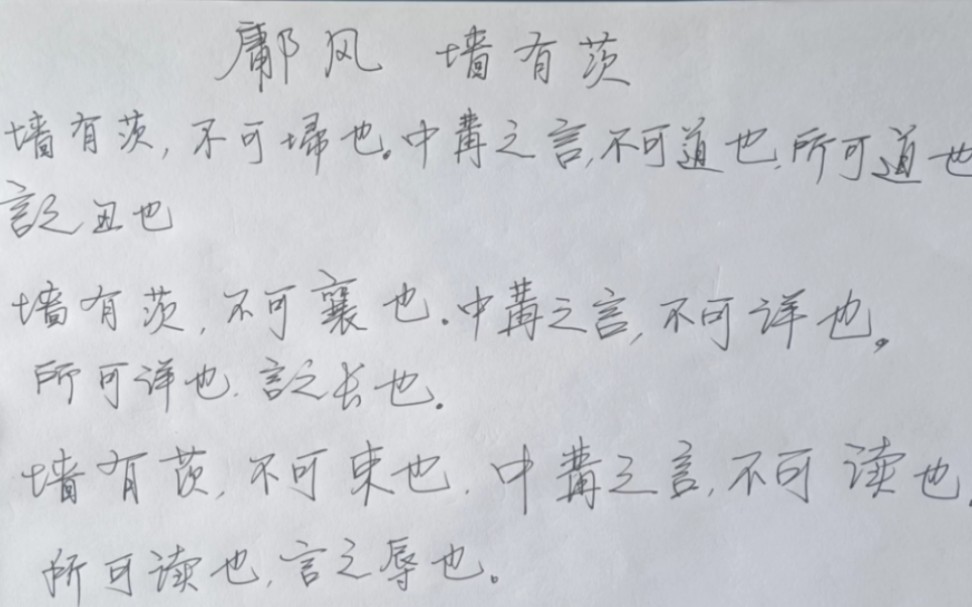 鄘风 墙有茨
墙有茨,不可埽也。中冓之言,不可道也,所可道也
言之丑也
墙有茨,不可襄也.中冓之言,不可详也。
所可详也.言之长也.
墙有茨,不可束也.中冓之言,不可读也.
所可读也,言之辱也。